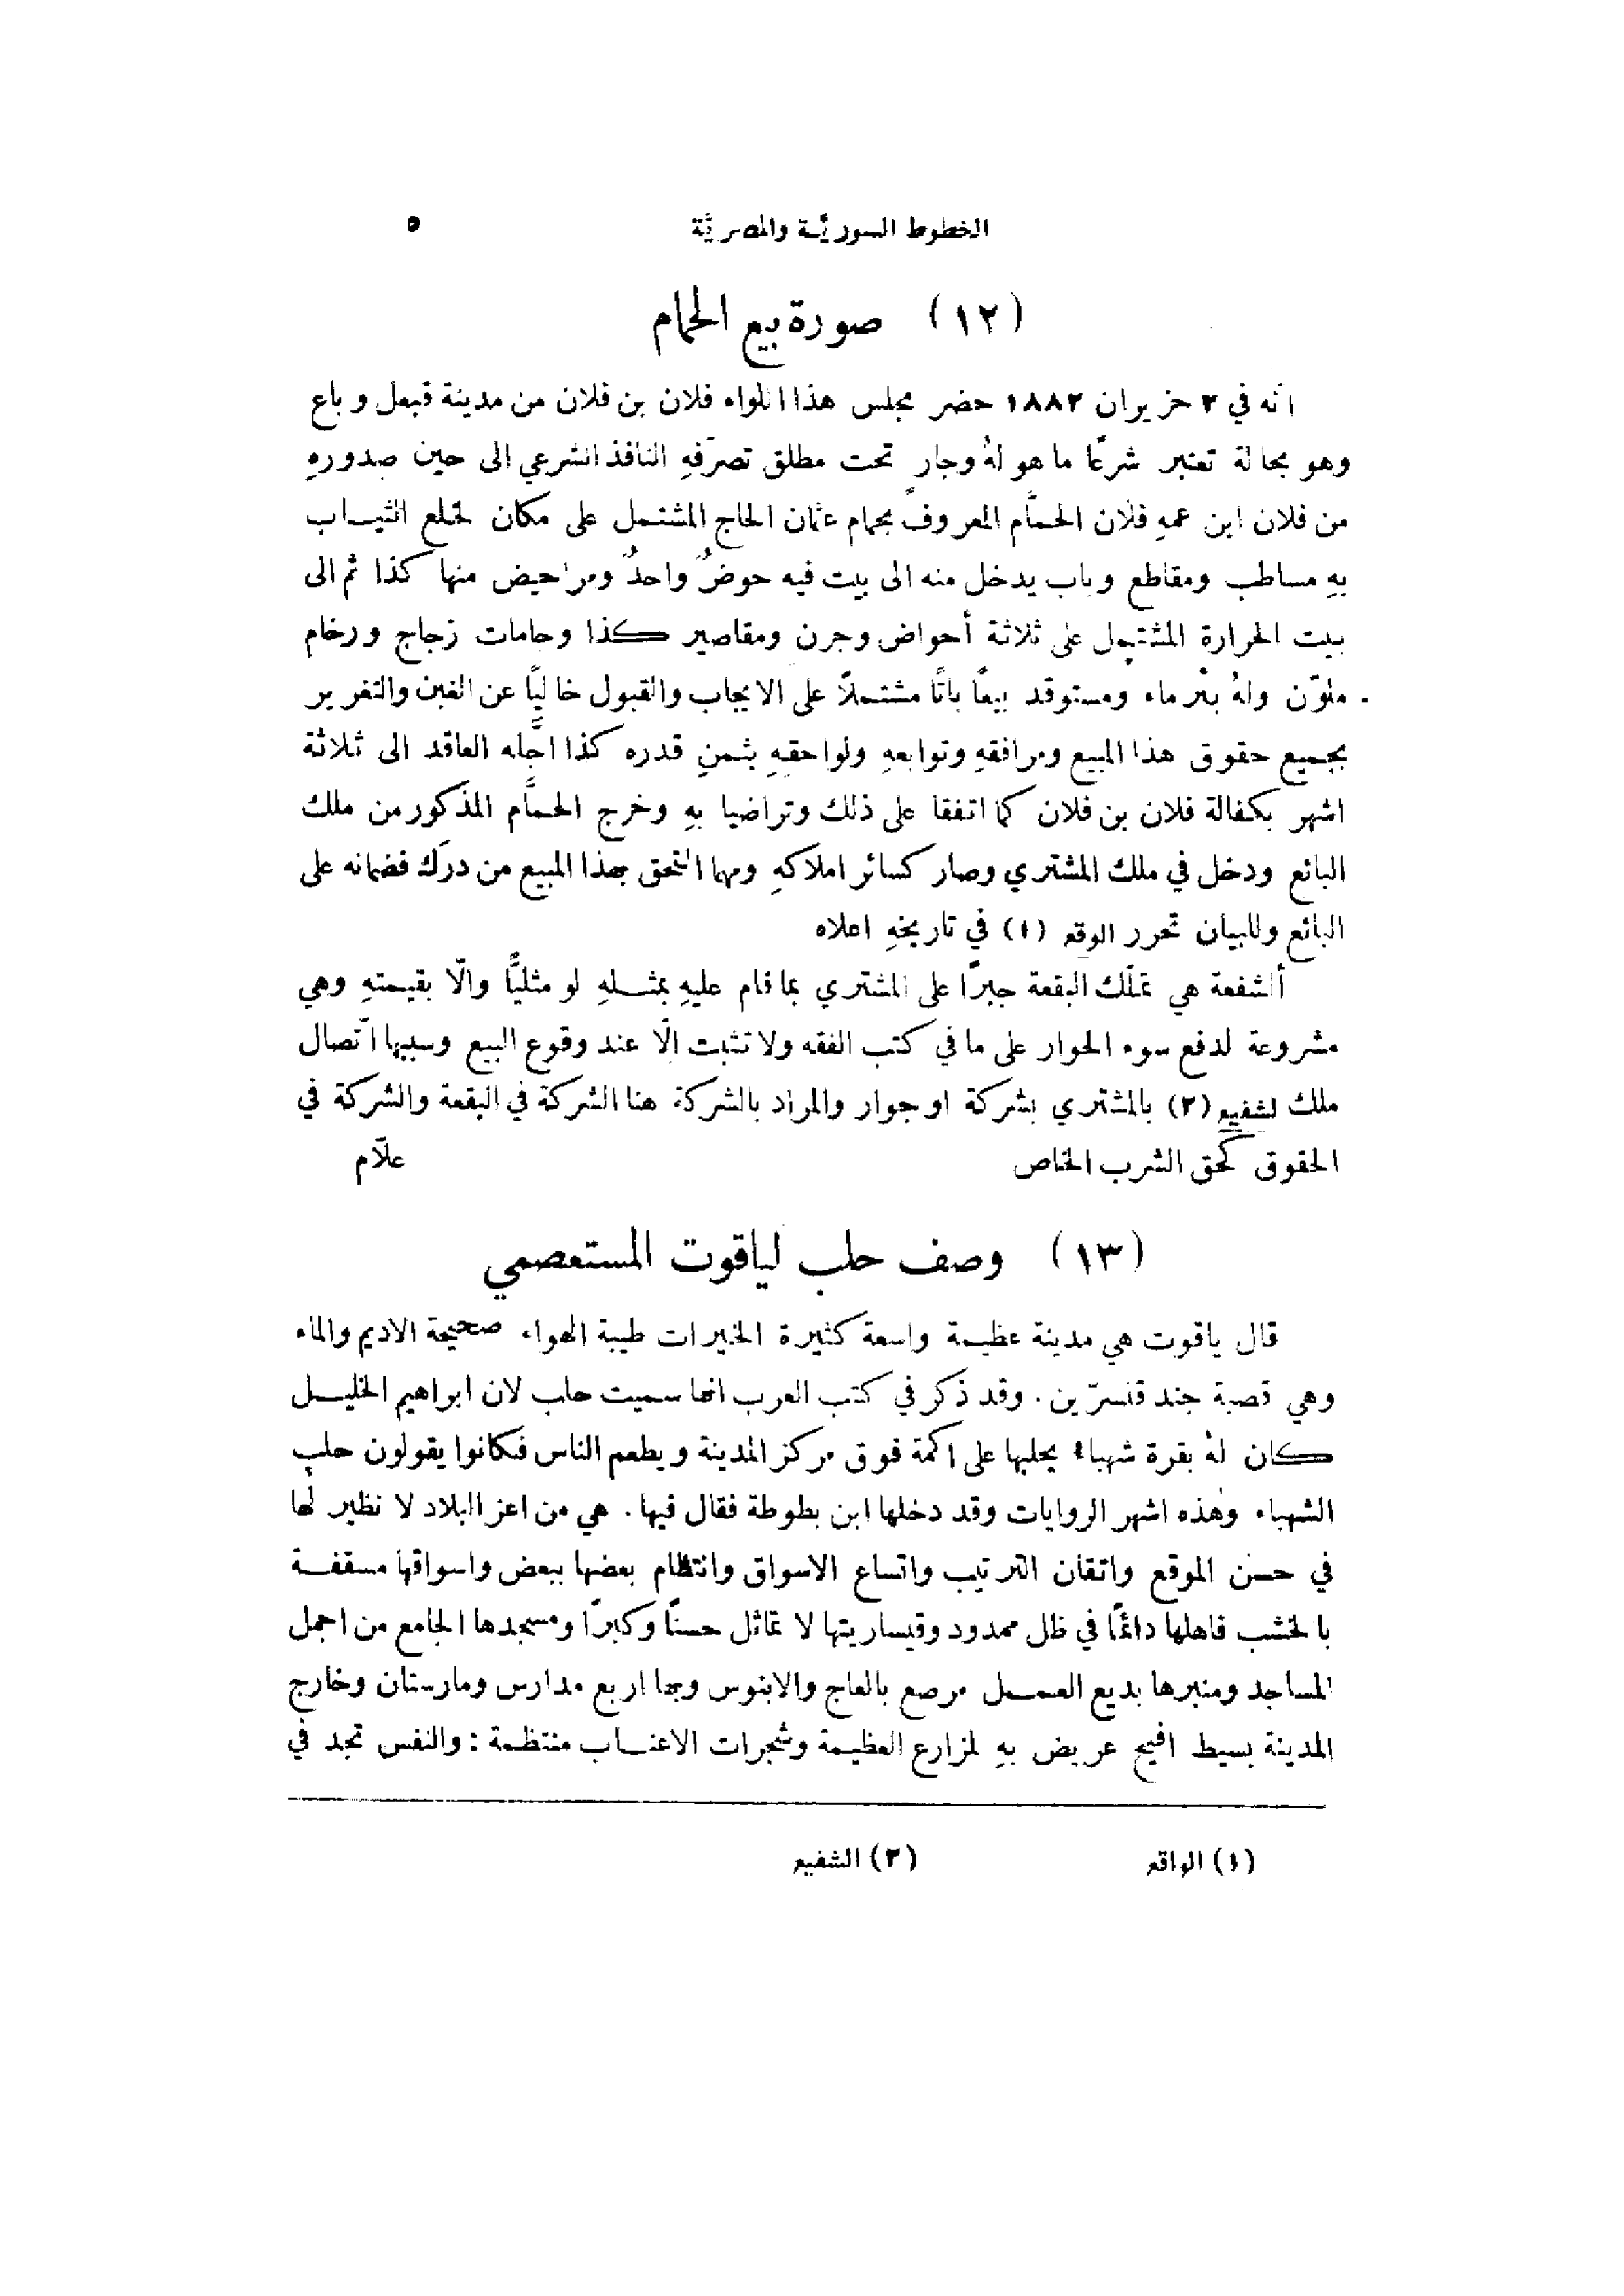 الخطوط السوريَّة والمصريَّة ٥
(١٢) صورة بيع الحمام
انّه في ٢ حزيران ١٨٨٢ حضر مجلس هذا اللواء فلان بن فلان من مدينة قبعل وباع
وهو بحالة تعتبر شرعًا ما هو لهُ وجارٍ تحت مطلق تصرّفهِ النافذ الشرعي الى حين صدورهِ
من فلان ابن عمهِ فلان الحمَّام المعروف بحمام عثمان الحاج المشتمل على مكان لخلع الثيــاب
بهِ مساطب ومقاطع وباب يدخل منه الى بيت فيه حوضٌ واحدٌ ومراحيض منها كذا ثم الى
بيت الحرارة المشتمل على ثلاثة أحواض وجرن ومقاصير كذا وجامات زجاج ورخام
ملوّن ولهُ بئر ماء ومستوقد بيعًا باتًا مشتملًا على الايجاب والقبول خاليًا عن الغبن والتغرير
بجميع حقوق هذا المبيع ومرافقهِ وتوابعهِ ولواحقهِ بثمنٍ قدره كذا اجَّله العاقد الى ثلاثة
اشهر بكفالة فلان بن فلان كما اتفقا على ذلك وتراضيا بهِ وخرج الحمَّام المذكور من ملك
البائع ودخل في ملك المشتري وصار كسائر املاكهِ ومهما التحق بهذا المبيع من درَك فضمانه على
البائع وللبيان تحرر الوقع (١) في تاريخهِ اعلاه
ألشفعة هي تملّك البقعة جبرًا على المشتري بما قام عليهِ بمثــلهِ لو مثليًّا والّا بقيمتهِ وهي
مشروعة لدفع سوء الحوار على ما في كتب الفقه ولا تثبت الّا عند وقوع البيع وسببها اتّصال
ملك لشفيع (٢) بالمشتري بشركة او جوار والمراد بالشركة هنا الشركة في البقعة والشركة في
الحقوق كحق الشرب الخاص علّام
(١٣) وصف حلب لياقوت المستعصمي
قال ياقوت هي مدينة عظيمة واسعة كثيرة الخيرات طيبة الهواء صحيحة الاديم والماء
وهي قصبة جند قنسرّين. وقد ذكر في كتب العرب انها سميت حلب لان ابراهيم الخليــل
كان لهُ بقرة شهباء يحلبها على اكمة فوق مركز المدينة ويطعم الناس فكانوا يقولون حلب
الشهباء وهذه اشهر الروايات وقد دخلها ابن بطوطة فقال فيها. هي من اعز البلاد لا نظير لها
في حسن الموقع واتقان الترتيب واتساع الاسواق وانتظام بعضها ببعض واسواقها مسقفــة
بالخشب فاهلها دائمًا في ظل ممدود وقيساريتها لا تماثل حسنًا وكبرًا ومسجدها الجامع من اجمل
المساجد ومنبرها بديع العمــل مرصع بالعاج والابنوس وبها اربع مدارس ومارستان وخارج
المدينة بسيط افيح عريض بهِ لمزارع العظيمة وشجرات الاعنــاب منتظمة : والنفس تجد في
(١) الواقع (٢) الشفيع